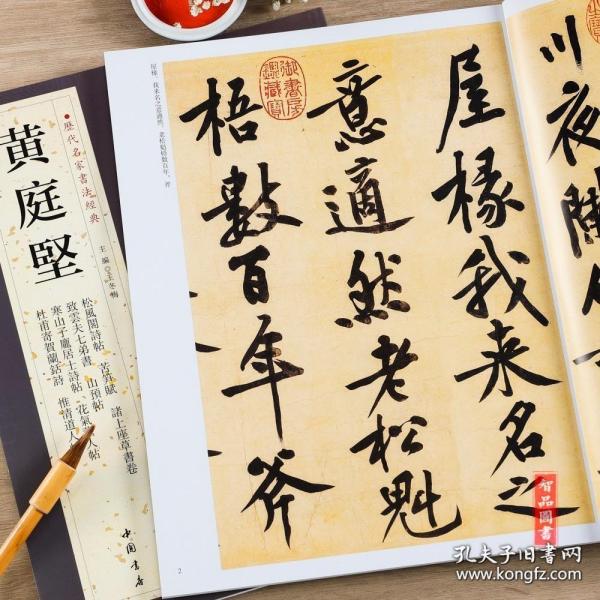 歷代名家書法經典
黄庭堅
主編 王冬梅
松風閣詩帖 苦笋賦 諸上座草書卷
致雲夫七弟書 山預帖
寒山子龐居士詩帖 花氣
人帖
杜甫寄賀蘭銛詩 惟清道人
中国書店
屋椽。我來名之意適然。老松魁梧數百年。斧
御書房鑑藏寶
川夜
屋椽我来名之
意適然老松魁
梧數百年斧
2
智品圖書
孔夫子旧書网
www.kongfz.com